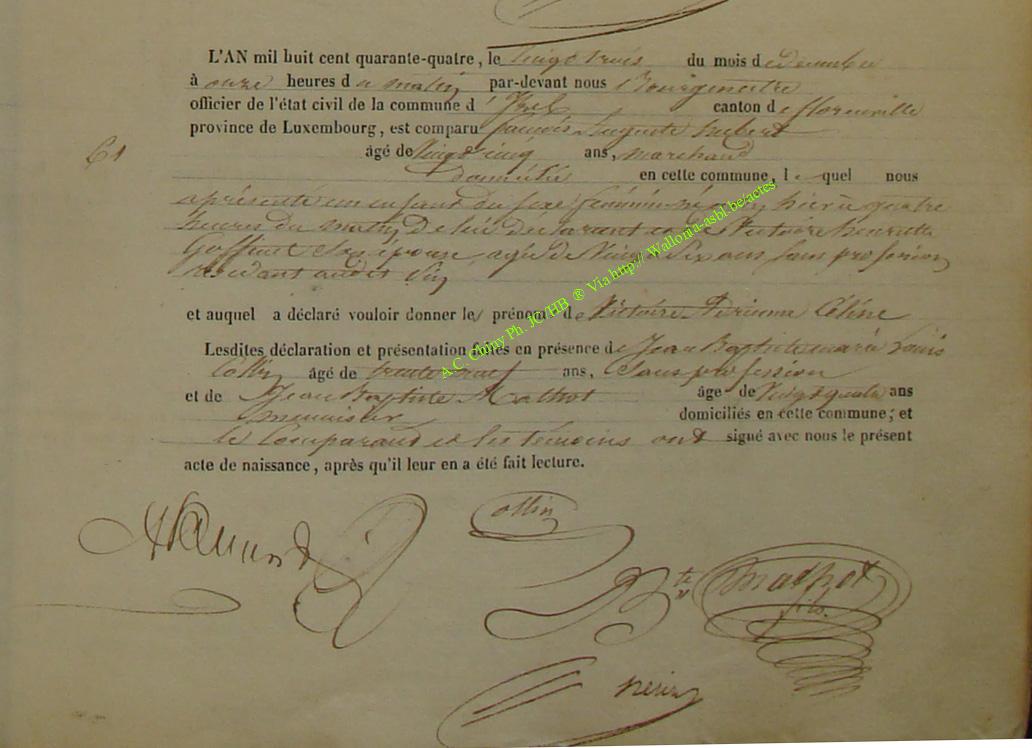 L'AN mil huit cent quarante-quatre, le vingt trois du mois de décembre
à onze heures du matin par-devant nous Bourgmestre
officier de l'état civil de la commune d'Izel canton de florenville
province de Luxembourg, est comparu auguste
61 âgé de vingt cinq ans, marchand
domicilié en cette commune, lequel nous
a présenté un enfant du sexe féminin né hier à quatre
heures du matin de lui déclarant et de Victoire henriette
Goffinet Son épouse agée de Vingt Six ans Sans profession
résidant audit
et auquel a déclaré vouloir donner les prénoms de Victoire Céline
Lesdites déclaration et présentation faites en présence de Jean Baptiste marie Louis
Collin âgé de trente neuf ans, Sans profession
et de Jean Baptiste Mathot âge de Vingt quatre ans
menuisier domiciliés en cette commune; et
le Comparant et les témoins ont signé avec nous le présent
acte de naissance, après qu'il leur en a été fait lecture.
Collin
Bte Mathot
fils.
A.C. Chiny Ph. JC/HB ® Via http:// Wallonia-asbl.be/actes